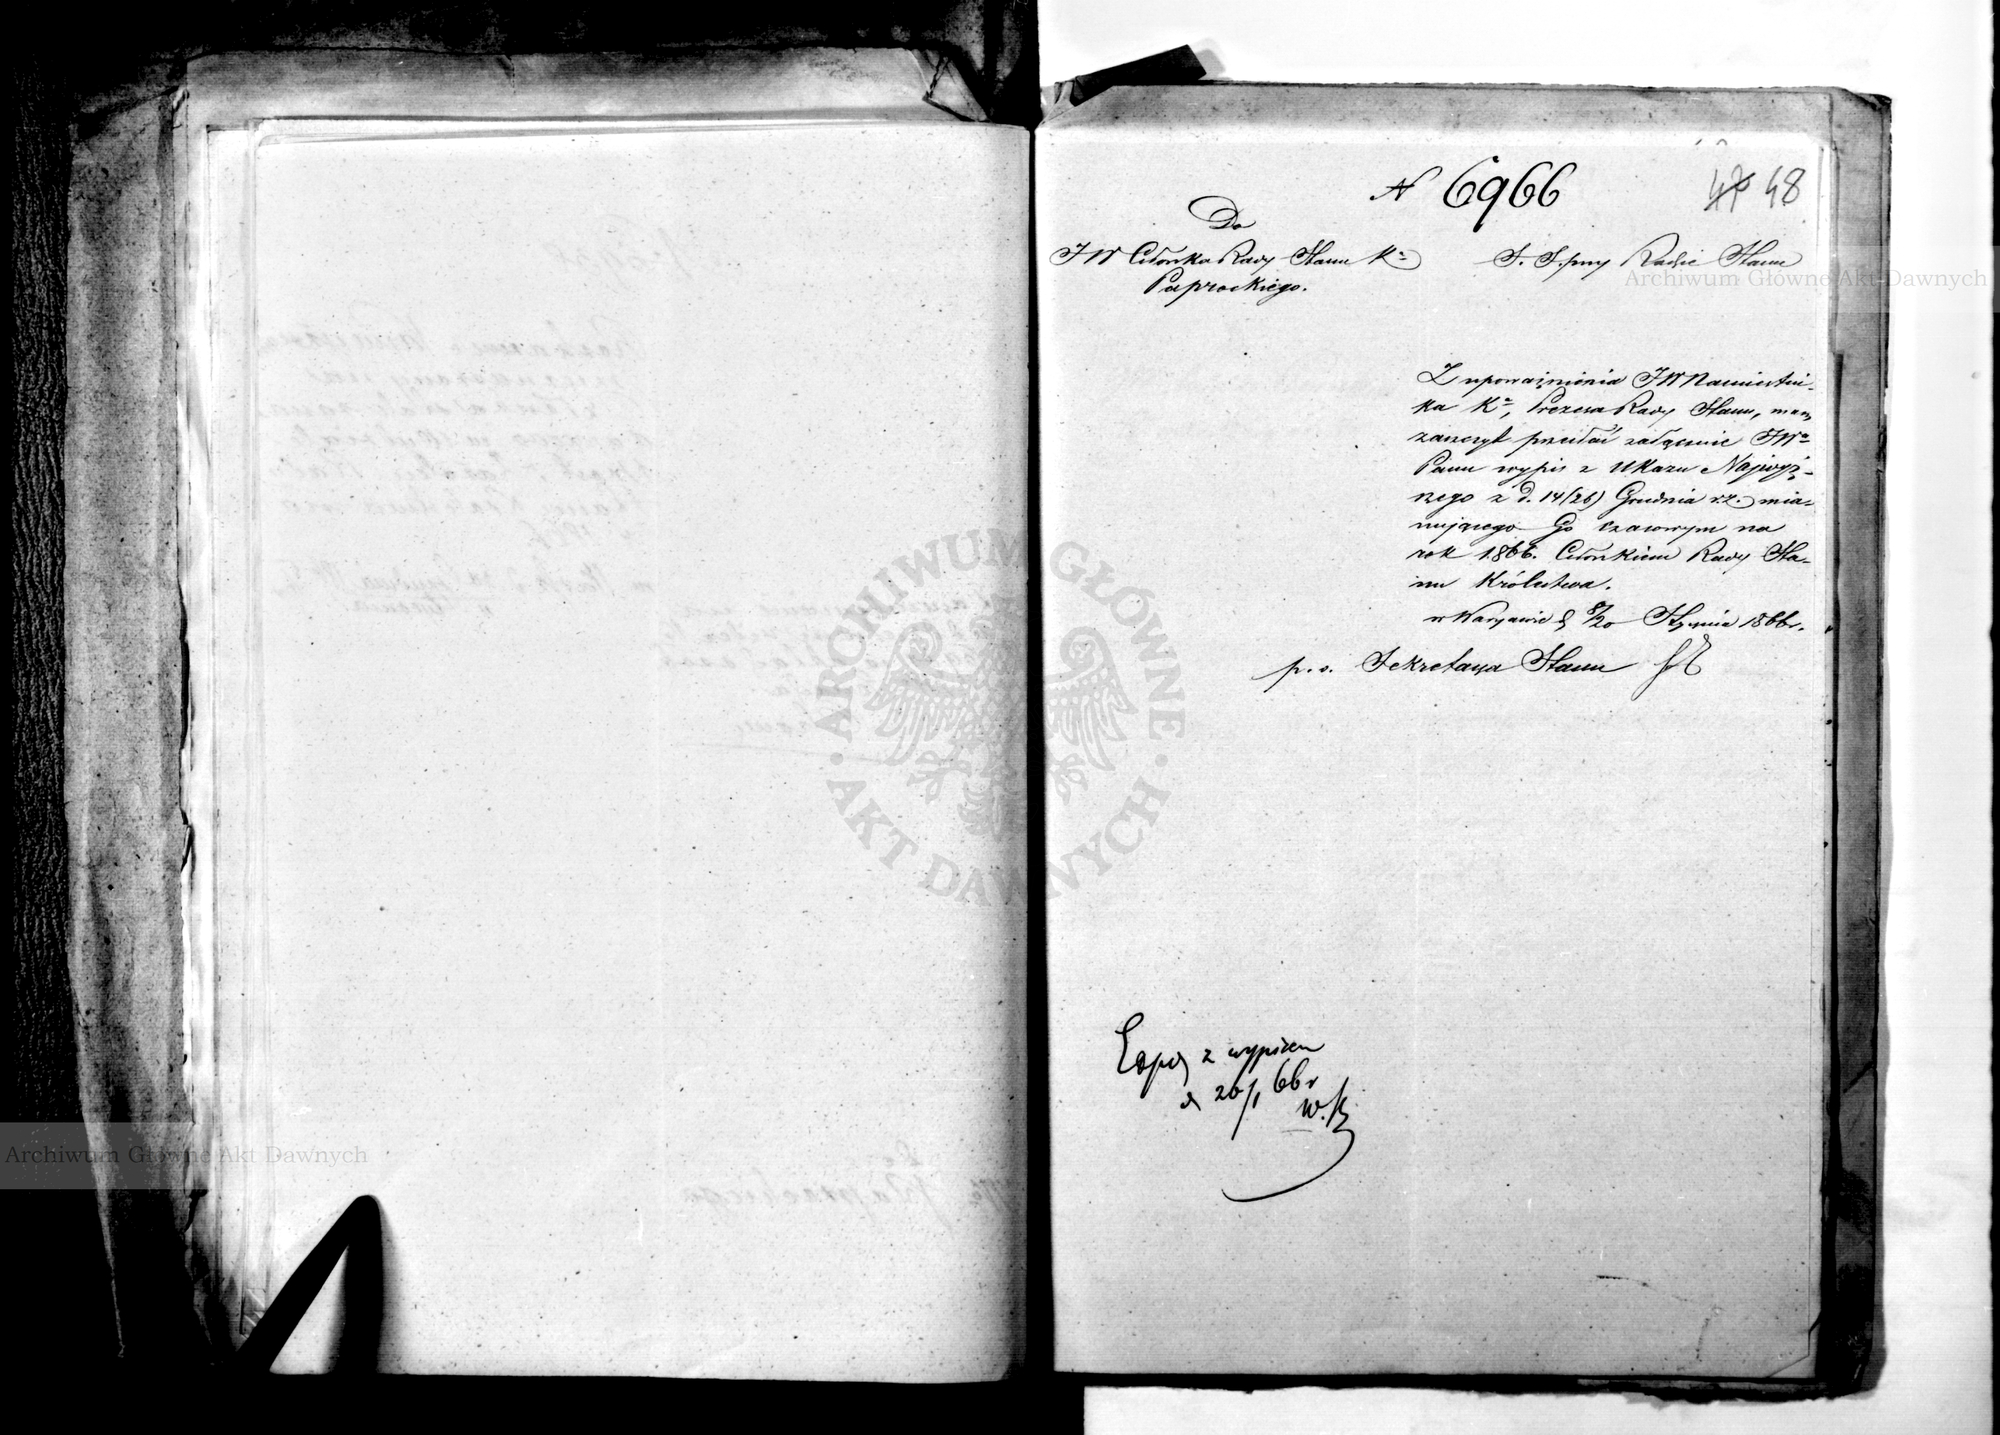 N 6966
47 48
Do
JW Członka Rady Stanu Ka
Paprockiego.
S. S. przy Radzie Stanu
Z upoważnienia JW Namiestni-
ka Ka, Prezesa Rady Stanu, mam
zaszczyt przesłać załącznie JWu
Panu wypis z Ukazu Najwyż-
szego z d. 14/26 Grudnia r.z. mia-
nującego Go czasowym na
rok 1866. Członkiem Rady Sta-
nu Królestwa.
w Warszawie d 8/20 Stycznia 1866 r.
p. o. Sekretarza Stanu
Exped z wypisem
d 20/1 66 r
W. K
Archiwum Główne Akt Dawnych
Archiwum Główne Akt Dawnych
ARCHIWUM GŁÓWNE
AKT DAWNYCH